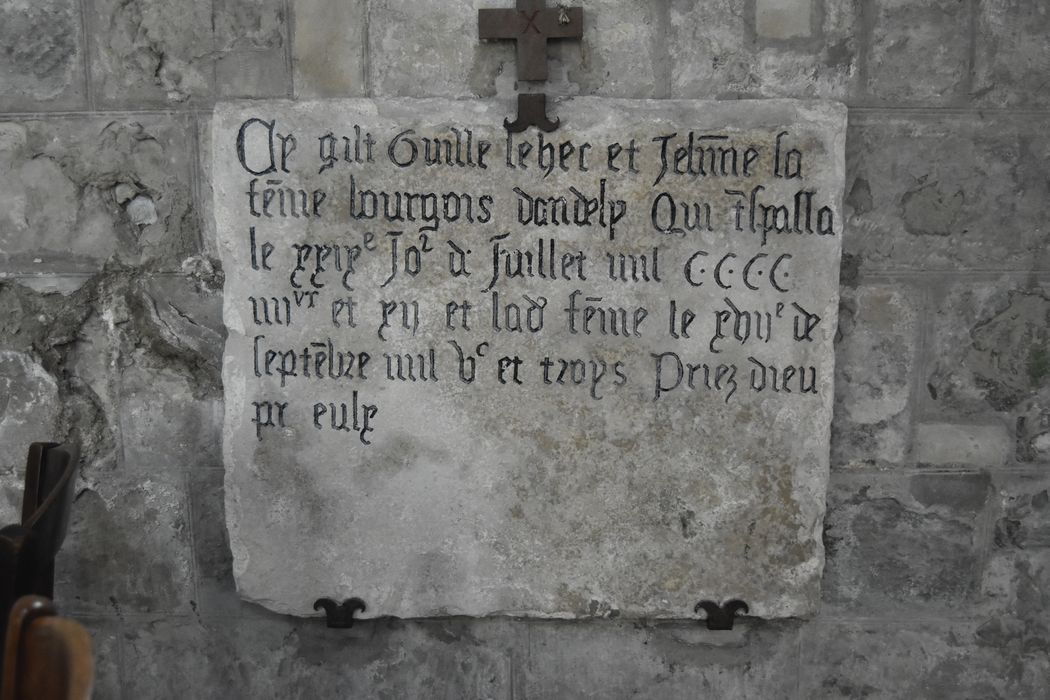 X
Cy gist Guille lehec et Jehñne sa
fẽme bourgois dandely Qui t̃spassa
le xxix^e Jo^r di Juillet mil C·C·C·C·
iiii^(xx) et xii et lad fẽme le xvii^e de
septẽbre mil v^c et troys Priez dieu
pr eulx